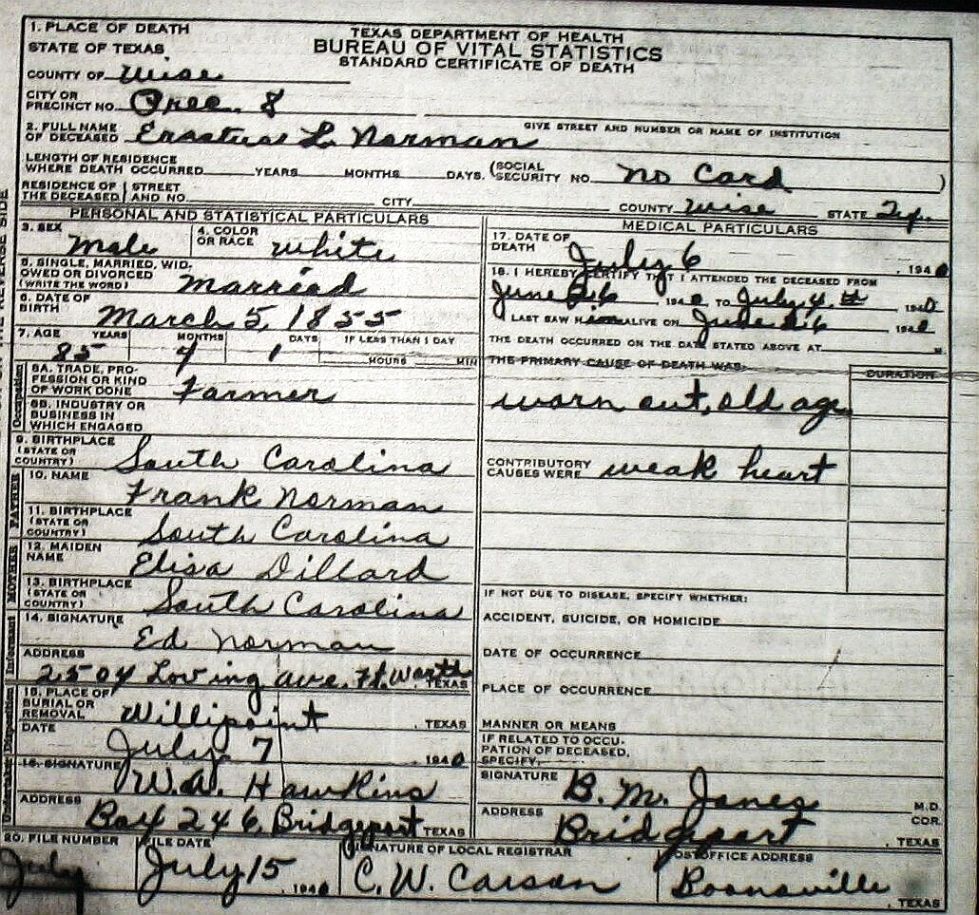 1. PLACE OF DEATH
STATE OF TEXAS
TEXAS DEPARTMENT OF HEALTH
BUREAU OF VITAL STATISTICS
STANDARD CERTIFICATE OF DEATH
COUNTY OF Wise
CITY OR PRECINCT NO. Prec. 8
GIVE STREET AND NUMBER OR NAME OF INSTITUTION
2. FULL NAME OF DECEASED Erastus L. Norman
LENGTH OF RESIDENCE WHERE DEATH OCCURRED YEARS MONTHS DAYS. (SOCIAL SECURITY NO. No Card )
RESIDENCE OF THE DECEASED STREET AND NO. CITY COUNTY Wise STATE Tex.
PERSONAL AND STATISTICAL PARTICULARS
3. SEX Male
4. COLOR OR RACE White
5. SINGLE, MARRIED, WIDOWED OR DIVORCED (WRITE THE WORD) Married
6. DATE OF BIRTH March 5, 1855
7. AGE YEARS MONTHS DAYS IF LESS THAN 1 DAY
85 4 1 HOURS MIN
Occupation
8A. TRADE, PROFESSION OR KIND OF WORK DONE Farmer
8B. INDUSTRY OR BUSINESS IN WHICH ENGAGED
9. BIRTHPLACE (STATE OR COUNTRY) South Carolina
FATHER
10. NAME Frank Norman
11. BIRTHPLACE (STATE OR COUNTRY) South Carolina
MOTHER
12. MAIDEN NAME Elisa Dillard
13. BIRTHPLACE (STATE OR COUNTRY) South Carolina
Informant
14. SIGNATURE Ed Norman
ADDRESS 2504 Loving Ave. Ft. Worth, TEXAS
Disposition
15. PLACE OF BURIAL OR REMOVAL Willipoint, TEXAS
DATE July 7 1940
Undertaker
16. SIGNATURE W.A. Hawkins
ADDRESS Box 246, Bridgeport TEXAS
MEDICAL PARTICULARS
17. DATE OF DEATH July 6, 1940
18. I HEREBY CERTIFY THAT I ATTENDED THE DECEASED FROM
June 26 1940 TO July 4th 1940
I LAST SAW Him ALIVE ON June 26 1940
THE DEATH OCCURRED ON THE DATE STATED ABOVE AT M.
THE PRIMARY CAUSE OF DEATH WAS: DURATION
worn out, old age
CONTRIBUTORY CAUSES WERE weak heart
IF NOT DUE TO DISEASE, SPECIFY WHETHER:
ACCIDENT, SUICIDE, OR HOMICIDE
DATE OF OCCURRENCE
PLACE OF OCCURRENCE
MANNER OR MEANS
IF RELATED TO OCCUPATION OF DECEASED, SPECIFY:
SIGNATURE B. M. Jones M.D. COR.
ADDRESS Bridgeport, TEXAS
20. FILE NUMBER July
FILE DATE July 15, 1940
SIGNATURE OF LOCAL REGISTRAR C. W. Carson
POSTOFFICE ADDRESS Boonsville, TEXAS